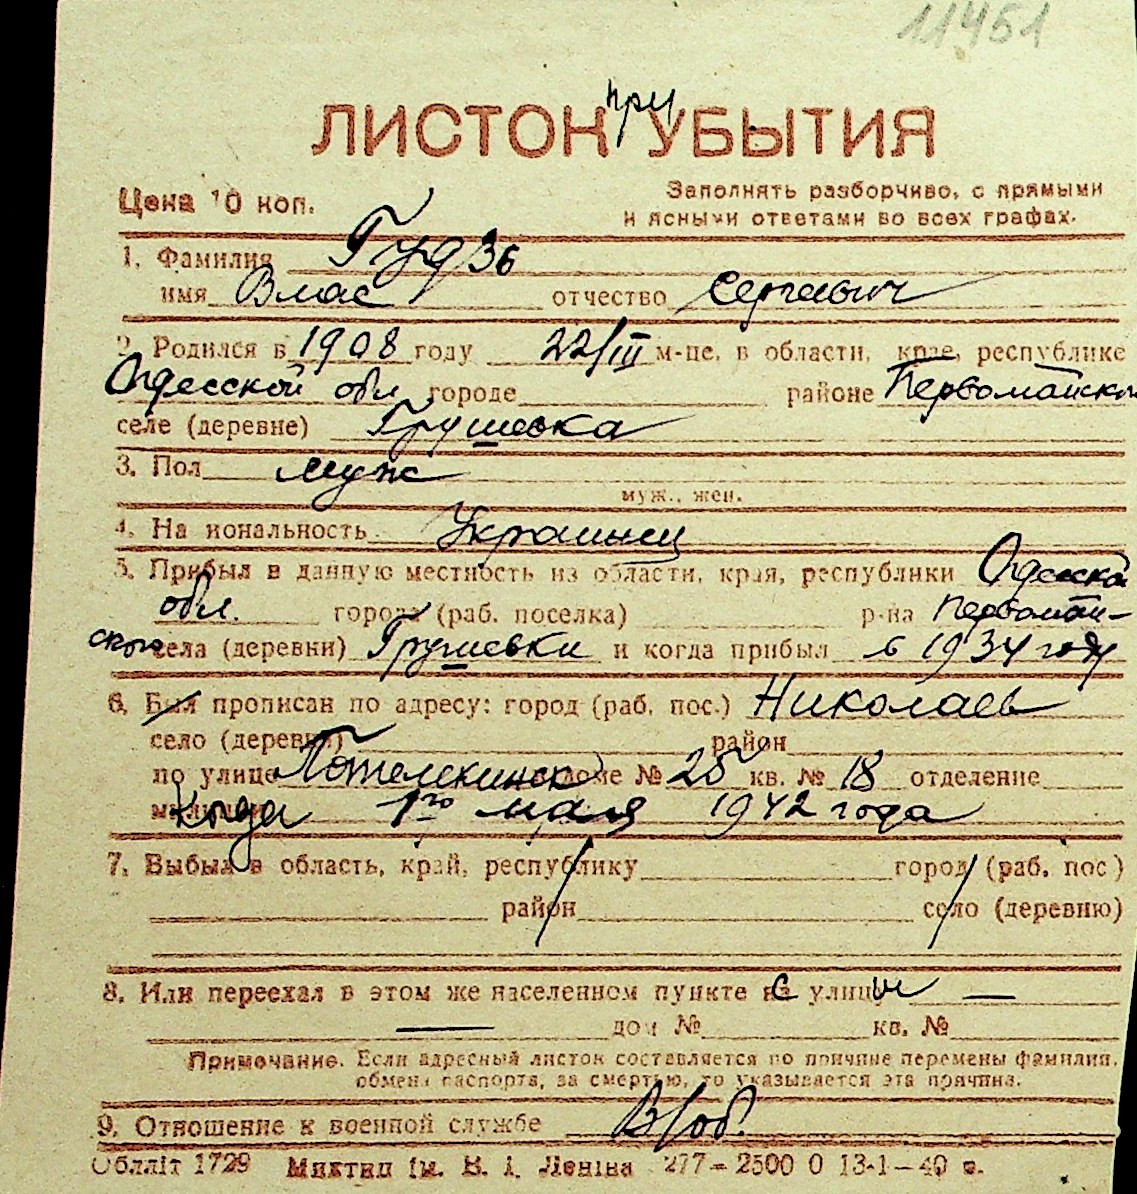 11451
при
ЛИСТОК УБЫТИЯ
Цена 10 коп.
Заполнять разборчиво, с прямыми
и ясными ответами во всех графах.
1. Фамилия Гудзь
имя Влас отчество Сергеевич
2. Родился в 1908 году 22/III м-це, в области, крае, республике
Одесской обл городе районе Первомайском
селе (деревне) Грушевка
3. Пол муж
муж., жен.
4. Национальность Украинец
5. Прибыл в данную местность из области, края, республики Одесской
обл. города (раб. поселка) р-на Первомай-
ского села (деревни) Грушевки и когда прибыл в 1934 году
6. Был прописан по адресу: город (раб. пос.) Николаев
село (деревня) район
по улице доме № 25 кв. № 18 отделение
милиции Когда 1го мая 1942 года
7. Выбыл в область, край, республику город (раб. пос.)
район село (деревню)
8. Или переехал в этом же населенном пункте на с улицы —
— дом № кв. №
Примечание. Если адресный листок составляется по причине перемены фамилии,
обмена паспорта, за смертью, то указывается эта причина.
9. Отношение к военной службе В/об.
Облліт 1729 Миктип ім. В. І. Леніна 277—2500 0 13-1—40 с.